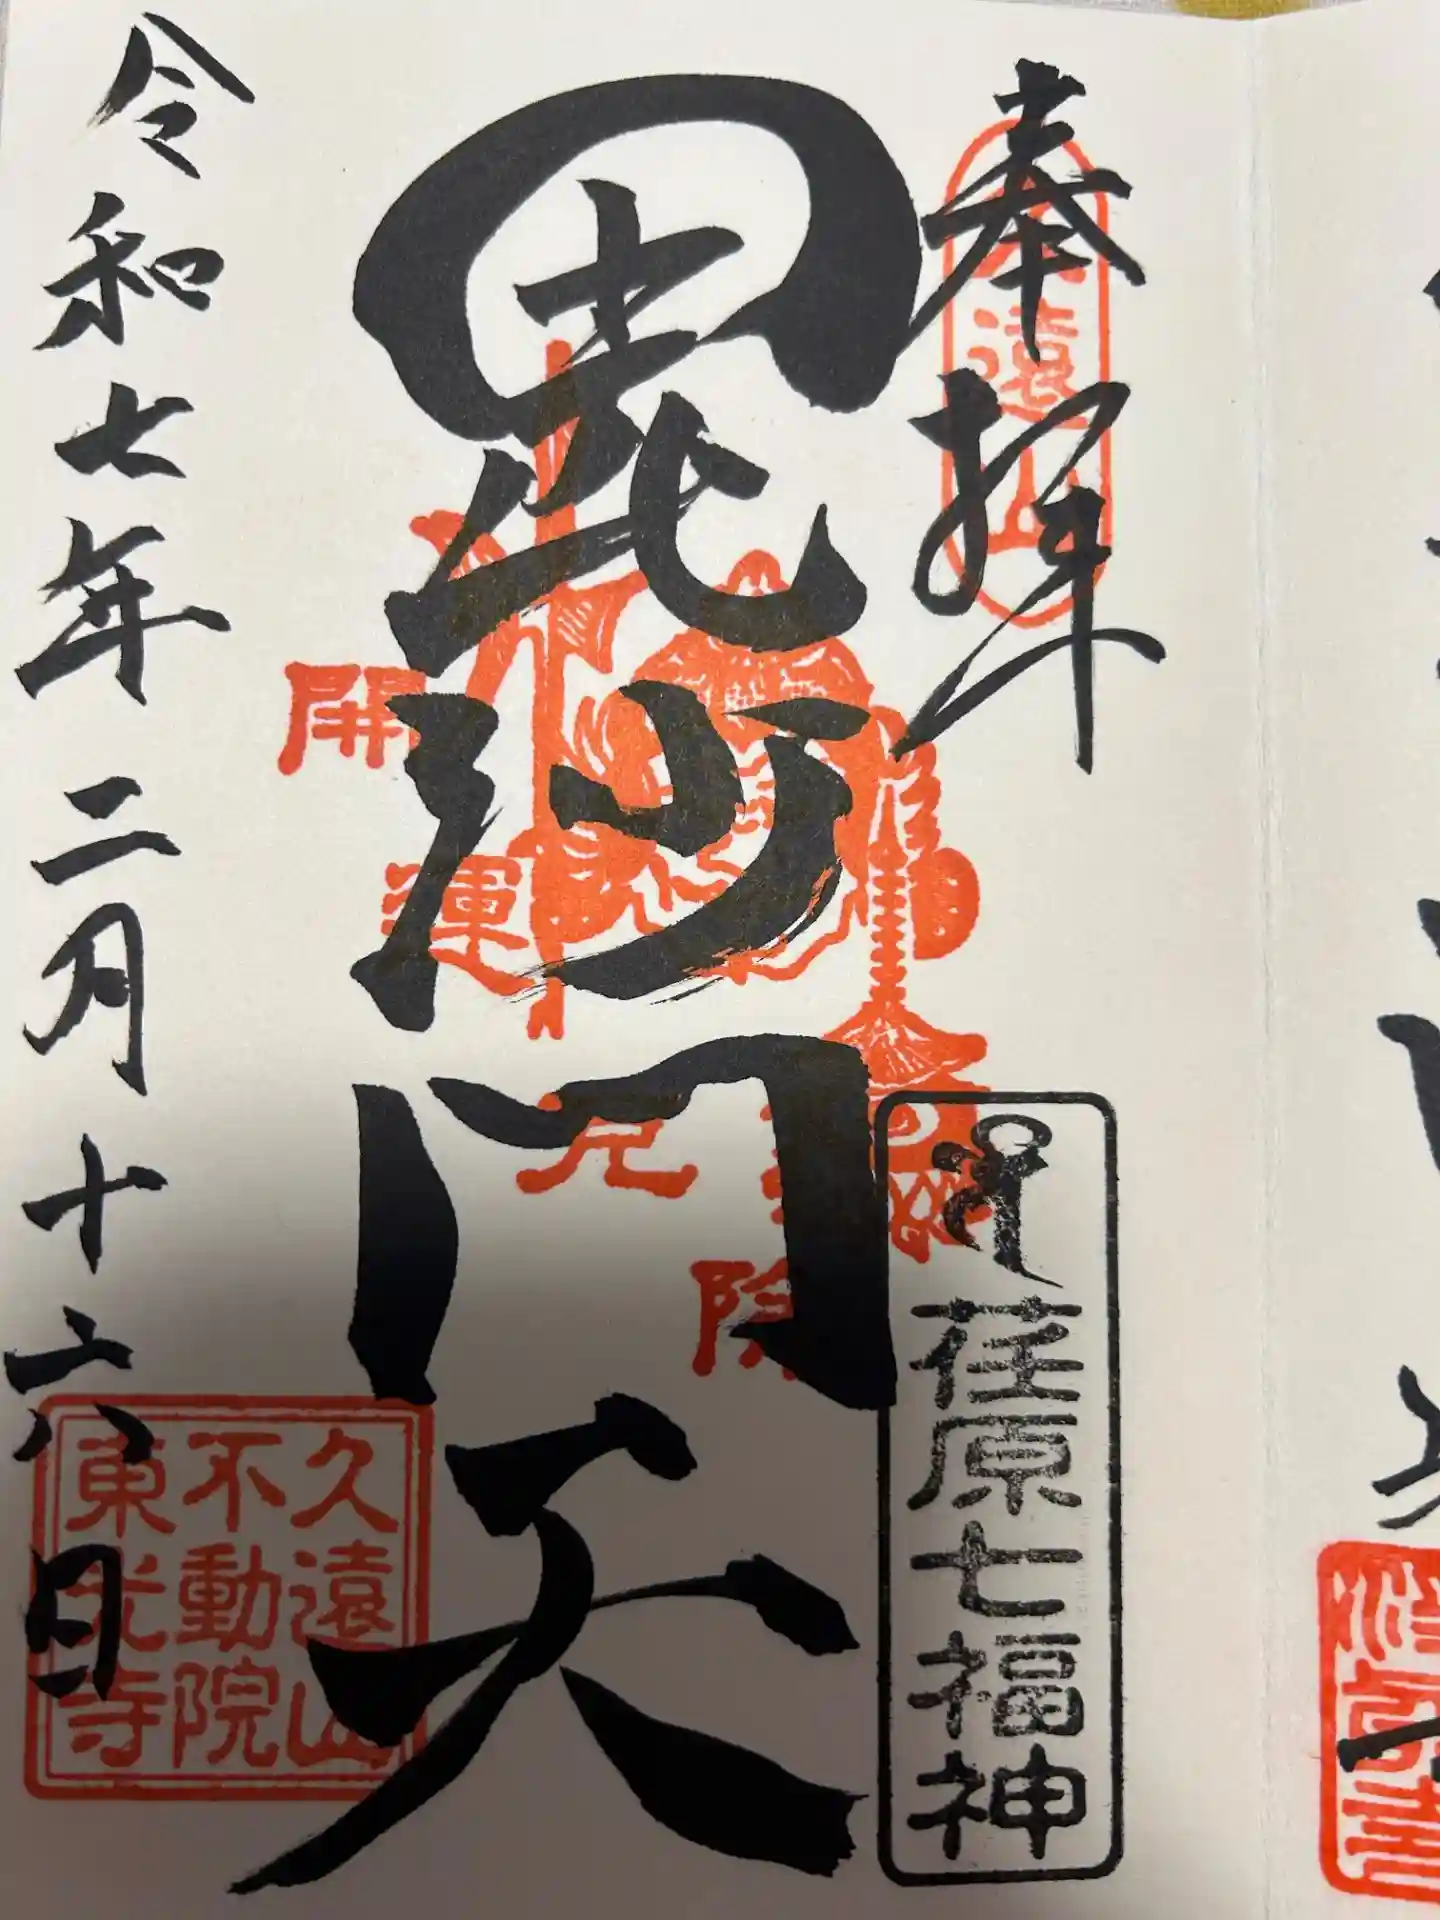 奉拝
久遠山
荏原七福神
毘沙門天
開運
厄除
令和七年二月十六日
久遠山
不動院
東光寺